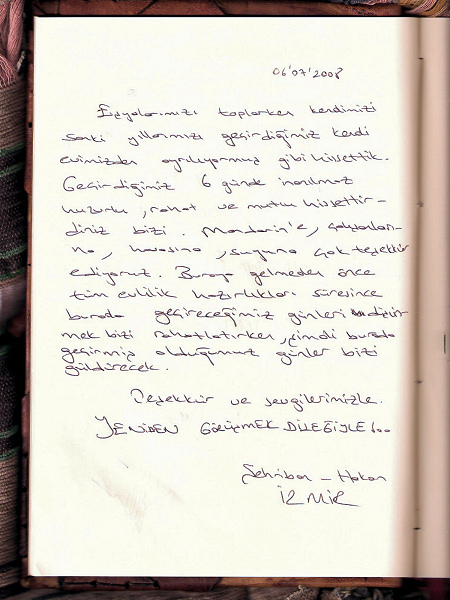 06'07'2008
Eşyalarımızı toplarken kendimizi
sanki yıllarımızı geçirdiğimiz kendi
evimizden ayrılıyormuş gibi hissettik.
Geçirdiğimiz 6 günde inanılmaz
huzurlu, rahat ve mutlu hissettir-
diniz bizi. Mandarin'e, çalışanları-
na, havasına, suyuna çok teşekkür
ediyoruz. Buraya gelmeden önce
tüm evlilik hazırlıkları süresince
burada geçireceğimiz günleri düşün-
mek bizi rahatlatırken, şimdi burada
geçirmiş olduğumuz günler bizi
güldürecek.
Teşekkür ve sevgilerimizle.
YENİDEN GÖRÜŞMEK DİLEĞİYLE...
Şehriban - Hakan
İZMİR